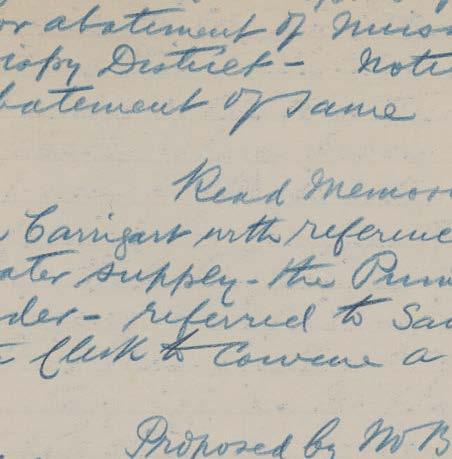 or abatement of Nuis
District - Noti
batement of same
Read Memor
Carrigart with referenc
ater supply - the Pum
der - referred to Sa
Clerk to convene a
Proposed by Mr B